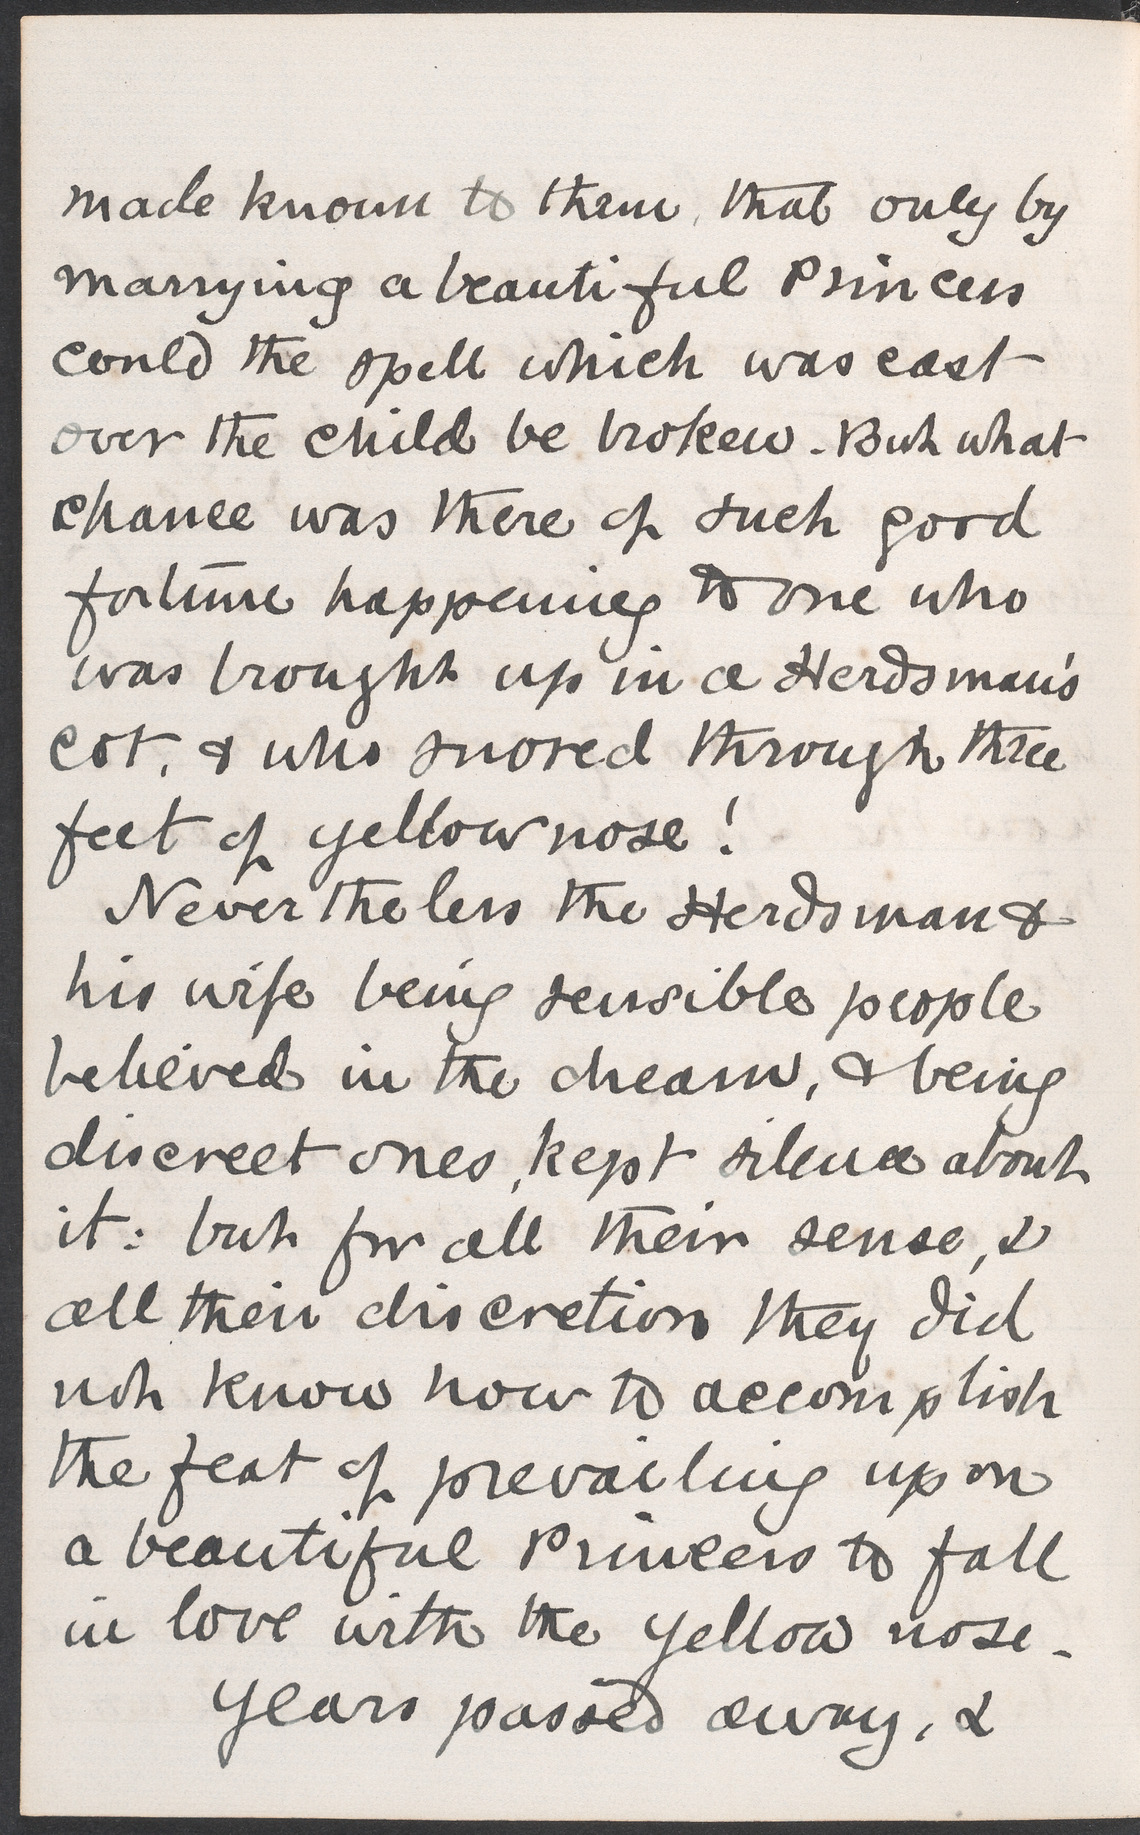 made known to them, that only by
marrying a beautiful Princess
could the spell which was cast
over the child be broken. But what
chance was there of such good
fortune happening to one who
was brought up in a Herdsman's
cot, & who snored through three
feet of yellow nose!
Nevertheless the Herdsman &
his wife being sensible people
believed in the dream, & being
discreet ones, kept silence about
it: but for all their sense, &
all their discretion they did
not know how to accomplish
the feat of prevailing upon
a beautiful Princess to fall
in love with the yellow nose.
Years passed away, &